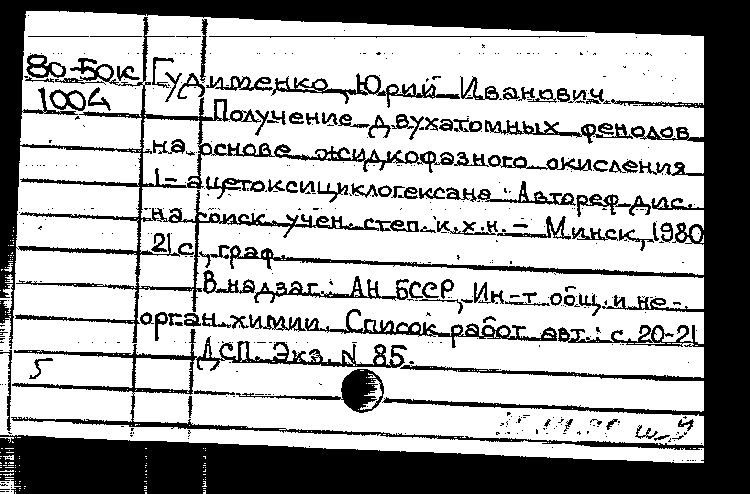 80-5ок Гудименко, Юрий Иванович
1004 Получение двухатомных фенолов
на основе жидкофазного окисления
1-ацетоксициклогексана: Автореф дис.
на соиск. учен. степ. к.х.н. - Минск, 1980
21 с., граф.
В надзаг.: АН БССР, Ин-т общ. и не-
орган. химии. Список работ авт.: с. 20-21
ДСП. Экз. N 85.
5